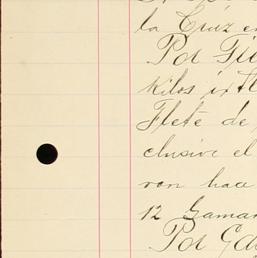 la Cruz en
Por Fle
Kilos ixtl
Flete de
clusive el
ron hace
12 Gamar
Por Ga